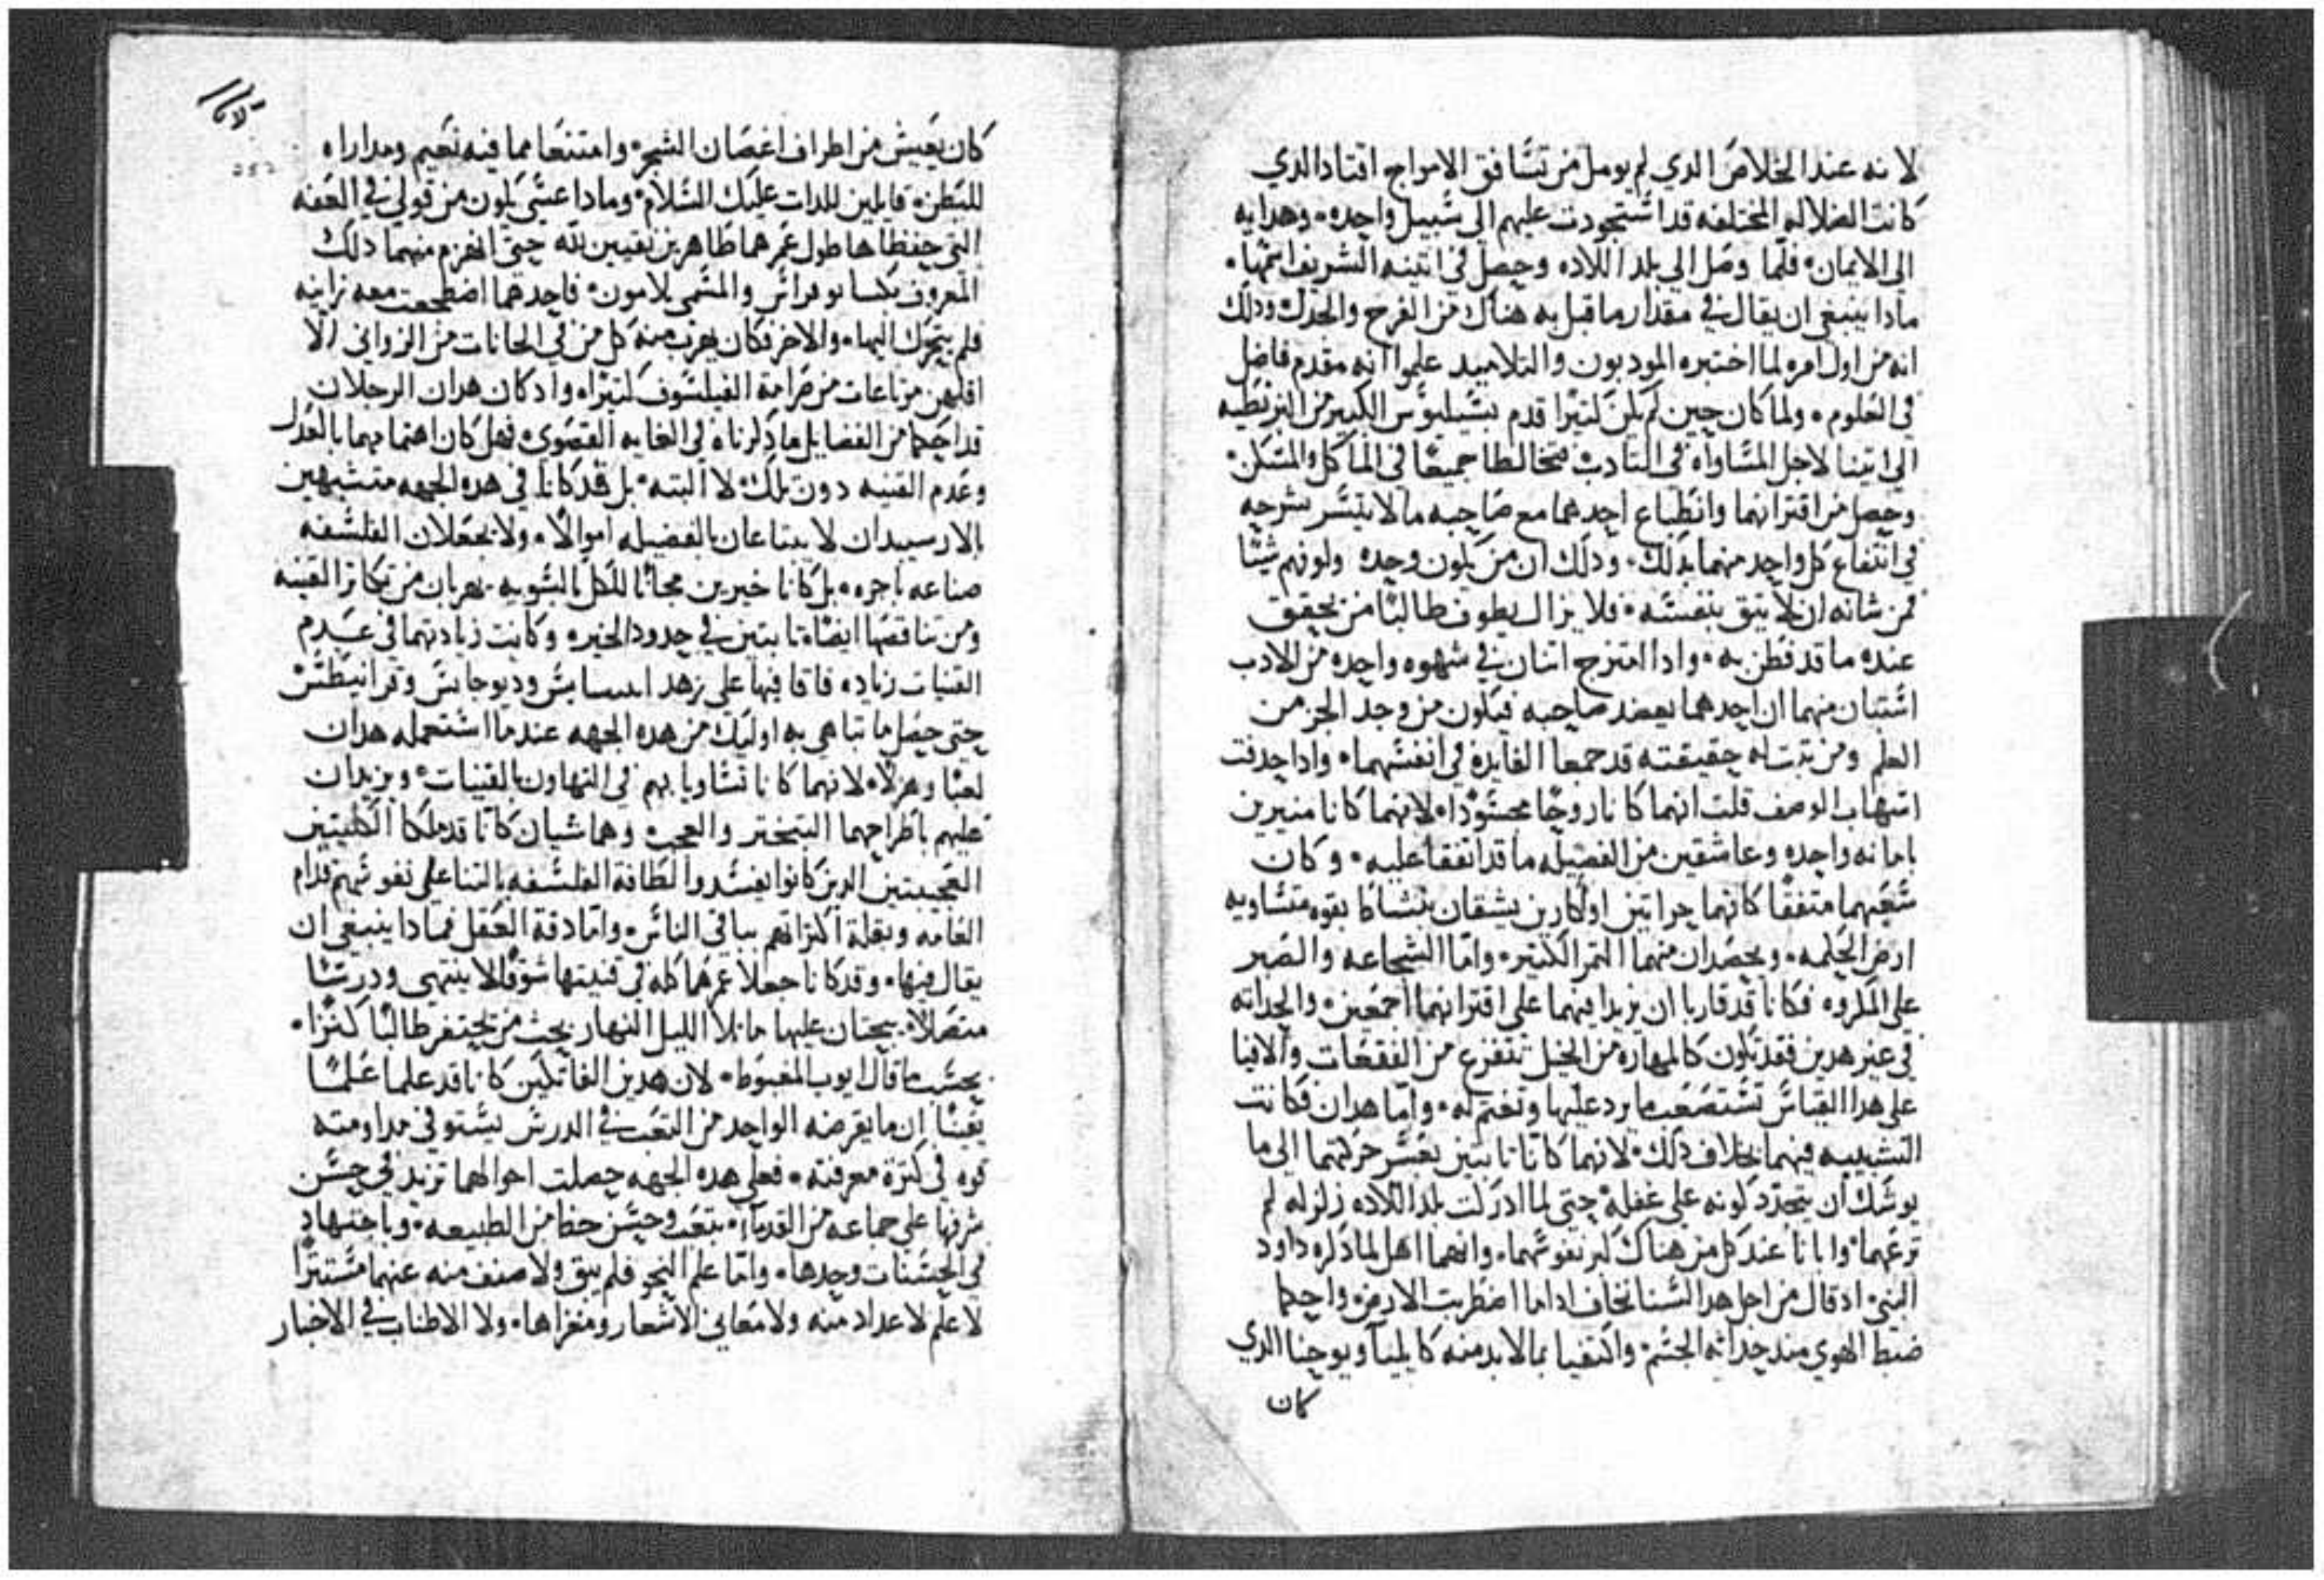 لانه عند الخلاص الدي لم يومل من تسافق الامواج اقتاد الدي
كانت الضلاله المختلفه قد استجودت عليهم الى سبيل واحده وهدايه
الى الايمان فلما وصل الي بلد اللاده وحصل في اتينه الشريف اسمها
مادا ينبغي ان يقال في مقدار ما قبل به هناك من الفرح والجدل ودلك
انه من اول امره لما اختبره المودبون والتلاميد علموا انه مقدم فاضل
في العلوم ولما كان حين لم يكن كتيرا قدم بسيليوس الكبير من البزنطيه
الى اتينا لاجل المساواه في التادب فتخالطا جميعا في الماكل والمسكن
وحصل من اقترانهما وانطباع احدهما مع صاحبه ما لا يتيسر شرحه
في انتفاع كل واحد منهما بدلك ودلك ان من يكون وحده ولو فهم شيئا
فمن شانه ان لا يتق بنفسه فلا يزال يطوف طالبا من يحقق
عنده ما قد فطن به وادا امتزج اتنان في شهوه واحده من الادب
استبان منهما ان احدهما يعضد صاحبه فيكون من وجد الجز من
العلم ومن تدبت له حقيقته قد جمعا الفايده في انفسهما وادا حدفت
اسهاب الوصف قلت انهما كانا زوجا محسودا لانهما كانا منيرين
بامانه واحده وعاشقين من الفضيله ما قد اتفقا عليه وكان
سعيهما متفقا كانهما حراتين او اكارين يشقان بنشاط بقوه متساويه
ارض الحكمه ويحصدان منهما التمر الكتير واما الشجاعه والصبر
على المكروه فكانا قد قاربا ان يزيدا فيهما على اقترانهما اجمعين والحداته
في غير هدين فقد تكون كالمهاره من الخيل تتفزع من الفقعات والافيا
على هدا القياس تستصعب ما يرد عليها وتغتم له واما هدان فكانت
الشبيبه فيهما بخلاف دلك لانهما كانا تابتين بعسر حركتهما الى ما
يوشك ان يتجدد كونه على غفله حتى لما ادركت بلد اللاده زلزله لم
ترعهما وابانا عند كل من هناك كبر نفوسهما وانهما اهل لما دكره داود
النبي اد قال من اجل هدا لسنا نخاف ادا ما اضطربت الارض واحكما
ضبط الهوي مند حداته الجسم واكتفيا بما لا بد منه كايليا ويوحنا الدي
كان
كان يعيش من اطراف اغصان الشجر وامتنعا مما فيه نعيم ومداراه
للبطن قايلين للدات عليك السلام ومادا عسى يكون من قولي في العفه
التي حفظاها طول عمرهما طاهرين نقيين لله حتى انهزم منهما دلك
المعروف بكسانوفراس والمسمى بلامون فاحدهما اضطجعت معه زانيه
فلم يتحرك اليها والاخر فكان يهرب منه كل من في الحانات من الزواني الا
اقلهن مرتاعات من صرامة الفيلسوف كتيرا واد كان هدان الرجلان
قد احكما من الفضايل ما دكرناه في الغايه القصوى فهل كان اهتمامهما بالعدل
وعدم القنيه دون تلك لا البته بل قد كانا في هده الجهه متشبهين
بالارسيدان لا يبتاعان بالفضيله اموالا ولا يجعلان الفلسفه
صناعه باجره بل كانا خيرين مجانا للكل بالسويه يهربان من تكاتر القنيه
ومن تناقصها ايضا تابتين في حدود الخير وكانت زيادتهما في عدم
القنيات زياده فاقا فيها على زهد وديوجانس وقرانيطس
حتى حصل ما تباهي به اوليك من هده الجهه عندما استعمله هدان
لعبا وهزلا لانهما كانا تساويا بهم في التهاون بالقنيات ويزيدان
عليهم باطراحهما التبختر والعجب وهما شيان كانا قد ملكا الكلبيين
العجيبين الدين كانوا يفسدوا لطافة الفلسفه بالتنا على نفوسهم قدام
العامه وبقلة اكتراتهم بباقي الناس واما دقة العقل فمادا ينبغي ان
يقال فيها وقد كانا جعلا عمرهما كله في قنيتها شوقا لا ينتهي ودرسا
متصلا يبحتان عليها ما بلا الليل النهار بحث من يحتفر طالبا كنزا
بحسب ما قال ايوب المغبوط لان هدين الفاتكين كانا قد علما علما
يقينا ان ما يقرضه الواحد من التعب في الدرس يستوفي مداومته
قوه في كترة معرفته فعلى هده الجهه حصلت احوالهما تزيد في حسن
شرفها على جماعه من القدما بتعب وحسن حظ من الطبيعه وباجتهاد
في الحسنات وحدها واما علم النحو فلم يبق ولا صنف منه عنهما مستترا
لا علم لاعداد منه ولا معاني الاشعار ومغزاها ولا الاطناب في الاخبار